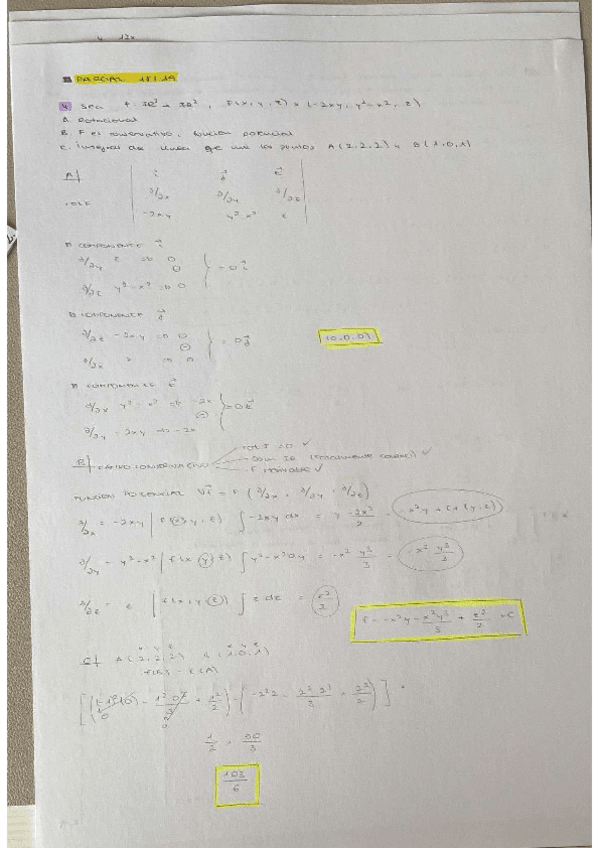 PARCIAL 18/19
4. Sea f: R³ → R³, F(x, y, z) = (-2xy, y²-x², z)
A. Rotacional
B. F es conservativo, función potencial
C. Integral de línea que une los puntos A(2,2,2) y B(1,0,1)
A|
i j k
∂/∂x ∂/∂y ∂/∂z
-2xy y²-x² z
COMPONENTE i
∂/∂y z => 0
∂/∂z y²-x² => 0
= 0i
COMPONENTE j
∂/∂z -2xy => 0
∂/∂x z => 0
= 0j
(0,0,0)
COMPONENTE k
∂/∂x y²-x² => -2x
∂/∂y -2xy => -2x
= 0k
B| CAMPO CONSERVATIVO
rot F = 0 ✓
✓
✓
FUNCIÓN POTENCIAL ∇f = F (∂/∂x, ∂/∂y, ∂/∂z)
∂/∂x = -2xy | f(x,y,z) ∫ -2xy dx = y -2x²/2 = -x²y + C + (y,z)
∂/∂y = y²-x² | f(x,y,z) ∫ y²-x² dy = -x² y³/3 = -x² y³/3
∂/∂z = z | f(x,y,z) ∫ z dz = z²/2
f = -x²y - x²y³/3 + z²/2 + C
C| A(2,2,2) B(1,0,1)
f(B) - f(A)
[((-1²)(0) - 1²·0³/3 + 1²/2) - (-2²·2 - 2²·2³/3 + 2²/2)] =
103/6